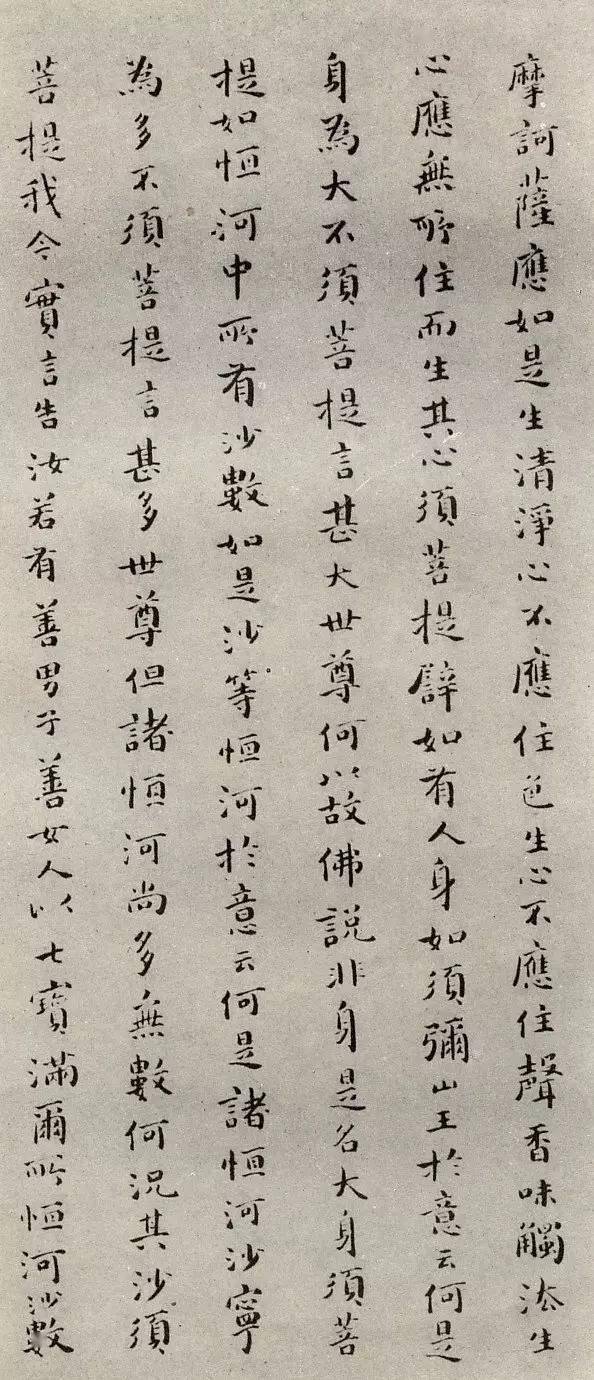 摩訶薩應如是生清淨心不應住色生心不應住聲香味觸法生
心應無所住而生其心須菩提譬如有人身如須彌山王於意云何是
身為大不須菩提言甚大世尊何以故佛說非身是名大身須菩
提如恒河中所有沙數如是沙等恒河於意云何是諸恒河沙寧
為多不須菩提言甚多世尊但諸恒河尚多無數何況其沙須
菩提我今實言告汝若有善男子善女人以七寶滿爾所恒河沙數